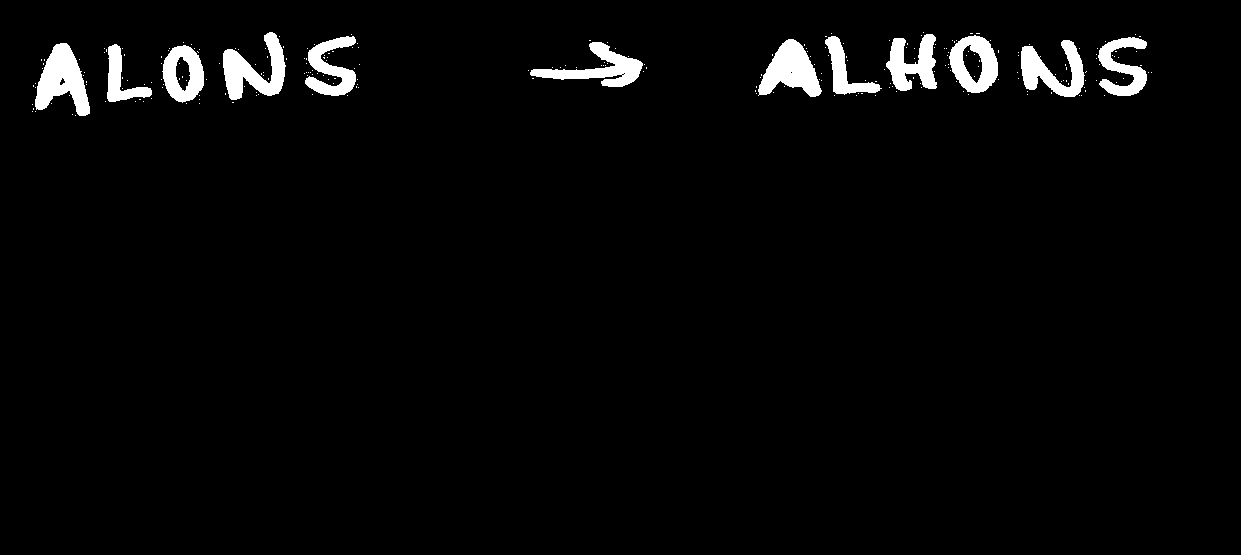 ALONS → ALHONS